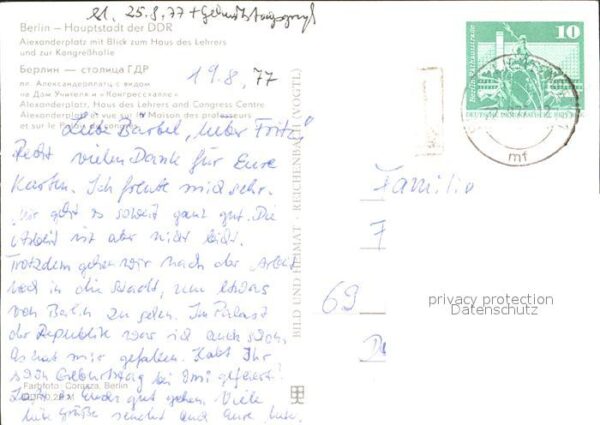 25.8.77 + Geburtstagsgruß
Berlin – Hauptstadt der DDR
Alexanderplatz mit Blick zum Haus des Lehrers
und zur Kongreßhalle
Берлин — столица ГДР
пл. Александерплатц с видом
на Дом Учителя и «Конгрессхалле»
Alexanderplatz, Haus des Lehrers and Congress Centre
Alexanderplatz et vue sur la Maison des professeurs
et sur le
19.8.77
Liebe Bärbel, lieber Fritz,
Recht vielen Dank für Eure
Karten. Ich freute mich sehr.
Mir geht es soweit ganz gut. Die
Arbeit ist aber nicht leicht.
Trotzdem gehen wir nach der Arbeit
noch in die Stadt, um etwas
von Berlin zu sehen. Im Palast
der Republik war ich auch schon.
Es hat mir gefallen. Habt Ihr
schön Geburtstag bei Omi gefeiert?
gut gehen. Viele
liebe Grüße sendet Euch Eure
Farbfoto: Corazza, Berlin
BILD UND HEIMAT · REICHENBACH (VOGTL)
10
mf
Familie
F
69
privacy protection
Datenschutz